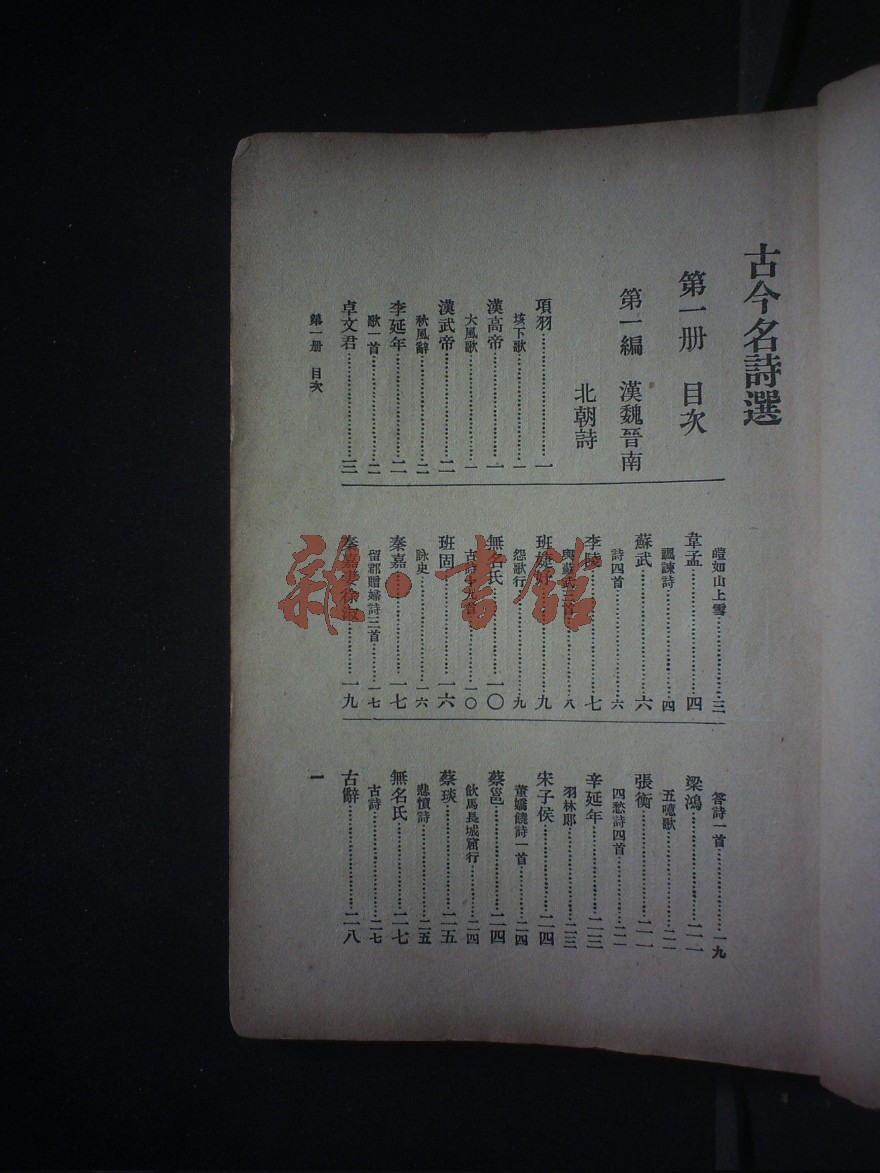 古今名詩選
第一册　目次
第一編　漢魏晉南
北朝詩
項羽……一
垓下歌……一
漢高帝……一
大風歌……一
漢武帝……二
秋風辭……二
李延年……二
歌一首……二
卓文君……三
皚如山上雪……三
韋孟……四
諷諫詩……四
蘇武……六
詩四首……六
李陵……七
與蘇武三首……八
班婕妤……九
怨歌行……九
無名氏……一〇
古詩十九首……一〇
班固……一六
詠史……一六
秦嘉……一七
留郡贈婦詩三首……一七
秦嘉妻徐淑……一九
答詩一首……一九
梁鴻……二一
五噫歌……二一
張衡……二一
四愁詩四首……二一
辛延年……二三
羽林郎……二三
宋子侯……二四
董嬌饒詩一首……二四
蔡邕……二四
飲馬長城窟行……二四
蔡琰……二五
悲憤詩……二五
無名氏……二七
古詩……二七
古辭……二八
第一册　目次
一
雜·書館